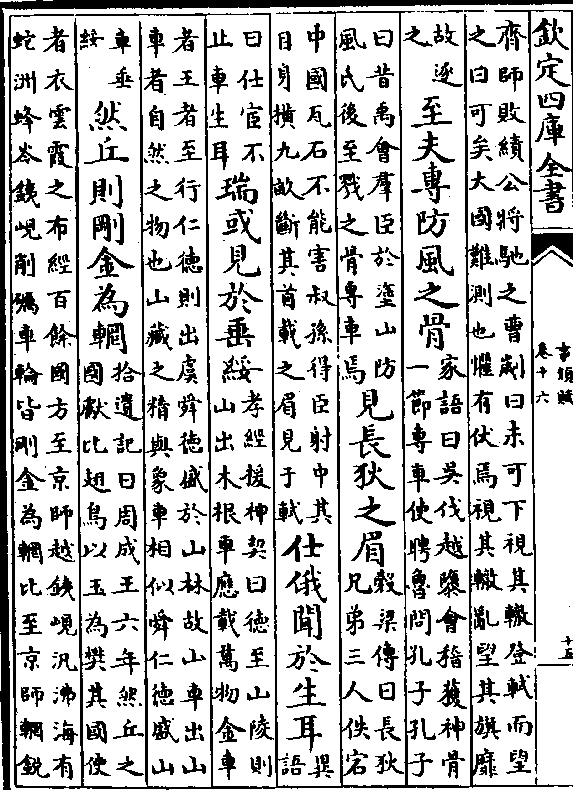 欽定四庫全書
事類賦
卷十六
十五
齊師敗績公將馳之曹劌曰未可下視其轍登軾而望
之曰可矣大國難測也懼有伏焉視其轍亂望其旗靡
故逐
之
至夫專防風之骨
家語曰吳伐越隳會稽獲神骨
一節專車使聘魯問孔子孔子
曰昔禹會羣臣於塗山防
風氏後至戮之骨專車焉
見長狄之眉
穀梁傳曰長狄
兄弟三人佚宕
中國瓦石不能害叔孫得臣射中其
目身横九畝斷其首載之眉見于軾
仕俄聞於生耳
異
語
曰仕宦不
止車生耳
瑞或見於垂綏
孝經援神契曰德至山陵則
山出木根車應載萬物金車
者王者至行仁德則出虞舜德盛於山林故山車出山
車者自然之物也山藏之精與象車相似舜仁德盛山
車垂
綏
然丘則剛金為輞
拾遺記曰周成王六年然丘之
國獻比翅鳥以玉為樊其國使
者衣雲霞之布經百餘國方至京師越鐵峴汎沸海有
蛇洲蜂岑鐵峴削礪車輪皆剛金為輞比至京師輞鋭